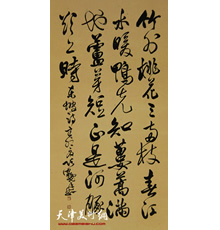 竹外桃花三两枝春江
水暖鸭先知蒌蒿满
地芦芽短正是河豚
欲上时
天津美术网